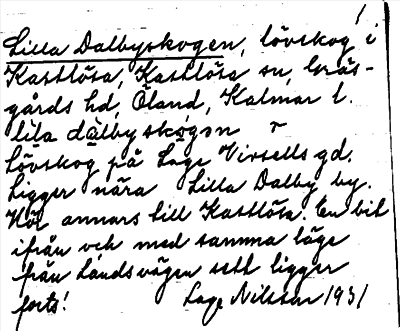 Lilla Dalbyskogen, lövskog i
Kastlösa, Kastlösa sn, Gräs-
gårds hd, Öland, Kalmar l.
lila dàlbyskogen
Lövskog på Lage Virsells gd.
Ligger nära Lilla Dalby by.
Hör annars till Kastlösa. En bit
ifrån och med samma läge
från landsvägen sett ligger
forts! Lage Nilsson 1931